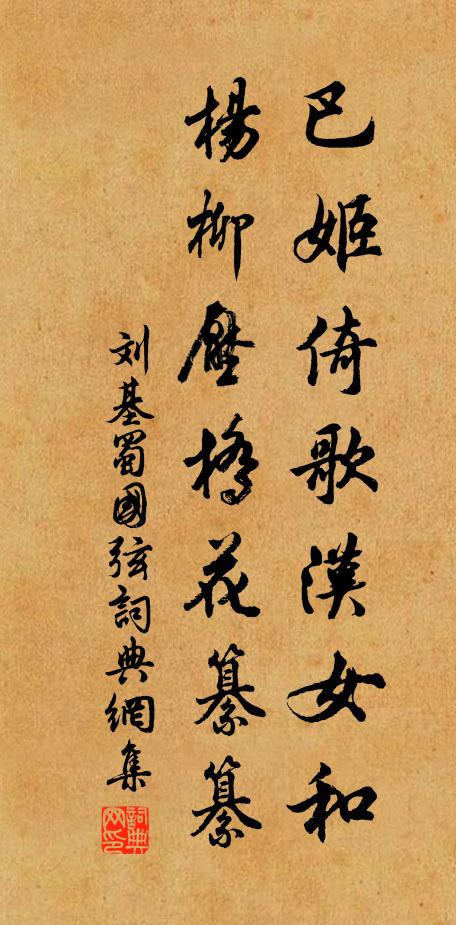 巴姬倚歌漢女和
楊柳壓橋花纂纂
刘基蜀國弦詞典網集
詞典網印